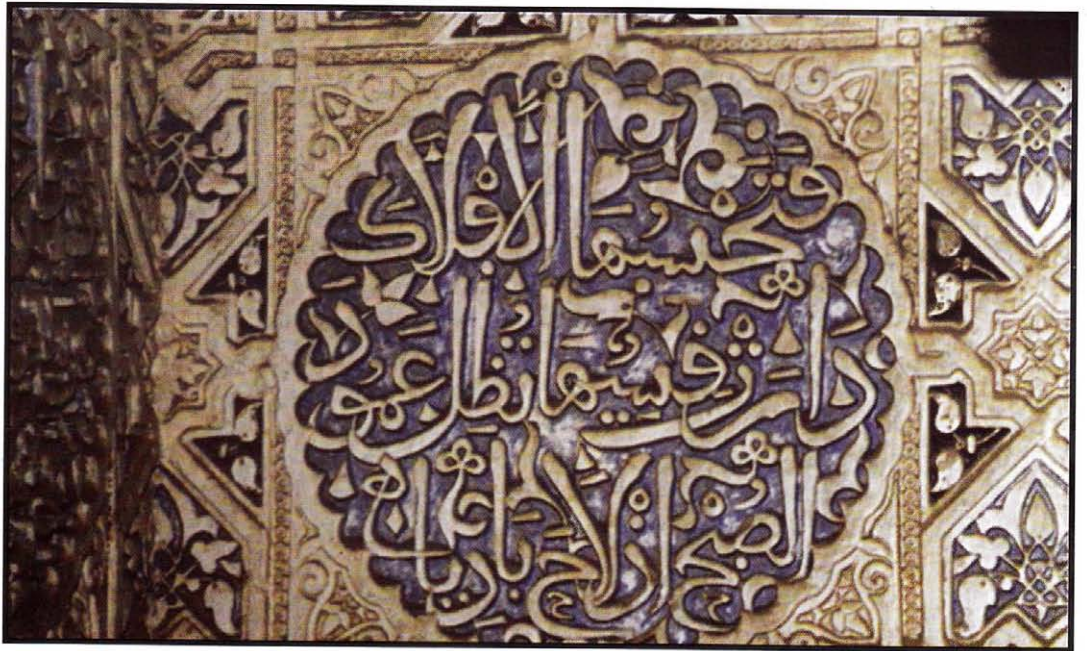 فتحسبها الافلاك
دارت قسيها تظل عمود
الصبح اذ لاح باديا